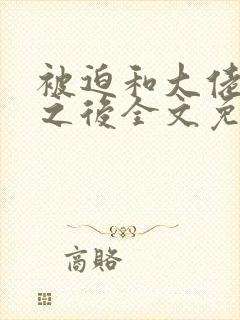 被迫和大佬
之後全文免
商賂